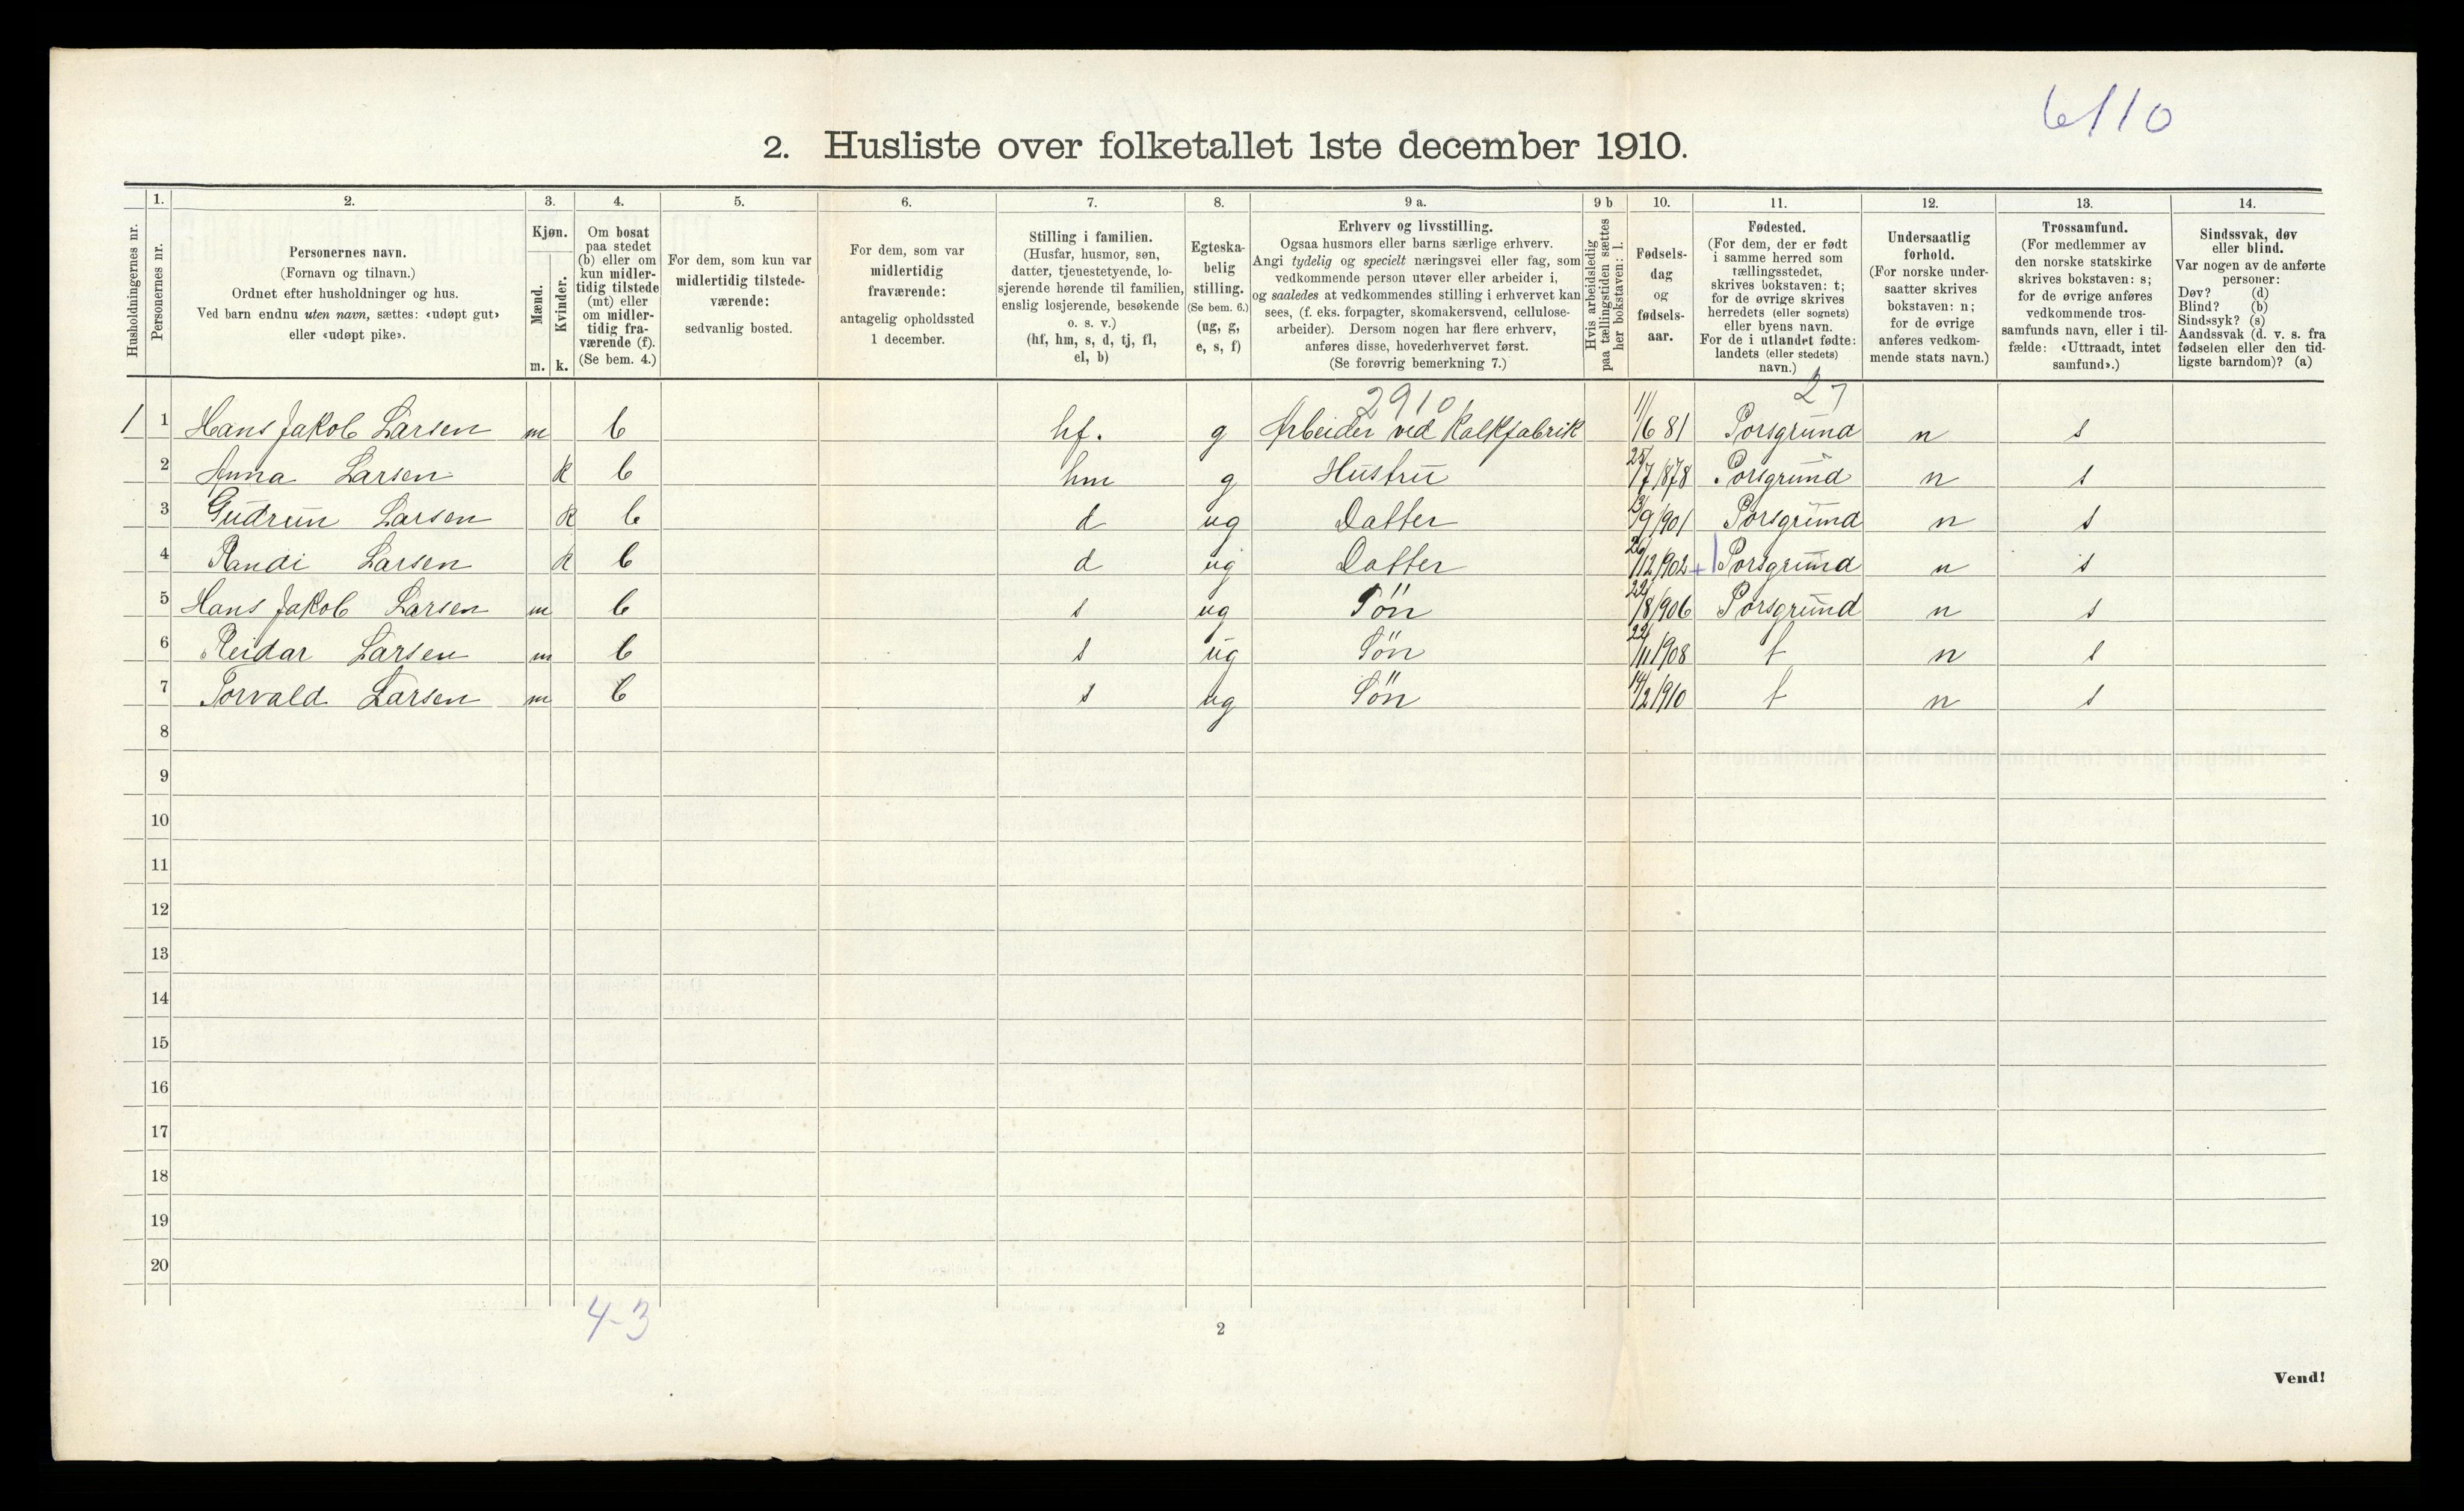 6110
2. Husliste over folketallet 1ste december 1910.
Husholdningernes nr.
1.
Personernes nr.
2.
Personernes navn.
(Fornavn og tilnavn.)
Ordnet efter husholdninger og hus.
Ved barn endnu uten navn, sættes: «udøpt gut»
eller «udøpt pike».
3.
Kjøn.
Mænd.
m.
Kvinder.
k.
4.
Om bosat
paa stedet
(b) eller om
kun midler-
tidig tilstede
(mt) eller
om midler-
tidig fra-
værende (f).
(Se bem. 4.)
5.
For dem, som kun var
midlertidig tilstede-
værende:
sedvanlig bosted.
6.
For dem, som var
midlertidig
fraværende:
antagelig opholdssted
1 december.
7.
Stilling i familien.
(Husfar, husmor, søn,
datter, tjenestetyende, lo-
sjerende hørende til familien,
enslig losjerende, besøkende
o. s. v.)
(hf, hm, s, d, tj, fl,
el, b)
8.
Egteska-
belig
stilling.
(Se bem. 6.)
(ug, g,
e, s, f)
9 a.
Erhverv og livsstilling.
Ogsaa husmors eller barns særlige erhverv.
Angi tydelig og specielt næringsvei eller fag, som
vedkommende person utøver eller arbeider i,
og saaledes at vedkommendes stilling i erhvervet kan
sees, (f. eks. forpagter, skomakersvend, cellulose-
arbeider). Dersom nogen har flere erhverv,
anføres disse, hovederhvervet først.
(Se forøvrig bemerkning 7.)
9 b
Hvis arbeidsledig
paa tællingstiden sættes
her bokstaven: l.
10.
Fødsels-
dag
og
fødsels-
aar.
11.
Fødested.
(For dem, der er født
i samme herred som
tællingsstedet,
skrives bokstaven: t;
for de øvrige skrives
herredets (eller sognets)
eller byens navn.
For de i utlandet fødte:
landets (eller stedets)
navn.)
12.
Undersaatlig
forhold.
(For norske under-
saatter skrives
bokstaven: n;
for de øvrige
anføres vedkom-
mende stats navn.)
13.
Trossamfund.
(For medlemmer av
den norske statskirke
skrives bokstaven: s;
for de øvrige anføres
vedkommende tros-
samfunds navn, eller i til-
fælde: «Uttraadt, intet
samfund».)
14.
Sindssvak, døv
eller blind.
Var nogen av de anførte
personer:
Døv? (d)
Blind? (b)
Sindssyk? (s)
Aandssvak (d. v. s. fra
fødselen eller den tid-
ligste barndom)? (a)
2910 27
1 1 Hans Jakob Larsen m b hf. g Arbeider ved Kalkfabrik 11/6 81 Porsgrund n s
2 Anna Larsen k b hm g Hustru 25/7 1878 Porsgrund n s
3 Gudrun Larsen k b d ug Datter 13/9 1901 Porsgrund n s
4 Randi Larsen k b d ug Datter 26/12 1902 + Porsgrund n s
5 Hans Jakob Larsen m b s ug Sön 22/8 1906 Porsgrund n s
6 Reidar Larsen m b s ug Sön 22/11 1908 t n s
7 Torvald Larsen m b s ug Sön 14/2 1910 t n s
8
9
10
11
12
13
14
15
16
17
18
19
20
4-3
2
Vend!